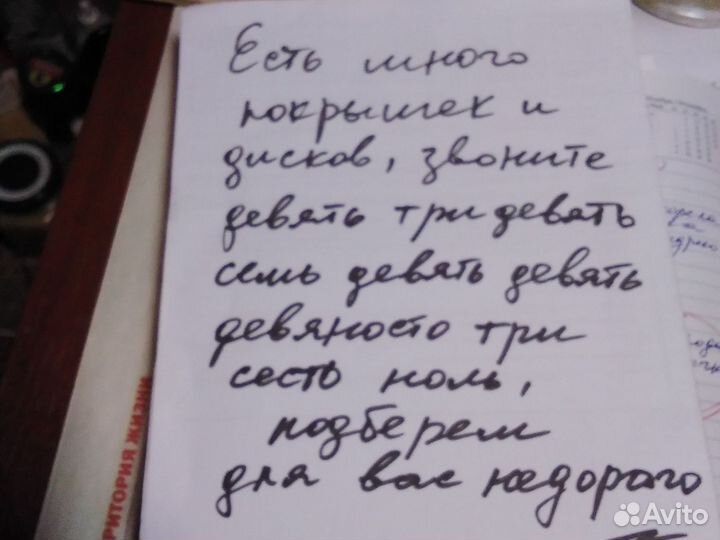 Есть много
покрышек и
дисков, звоните
девять три девять
семь девять девять
девяносто три
сесть ноль,
подберем
для вас недорого
РИТОРИЯ ЖИЗНИ
Avito